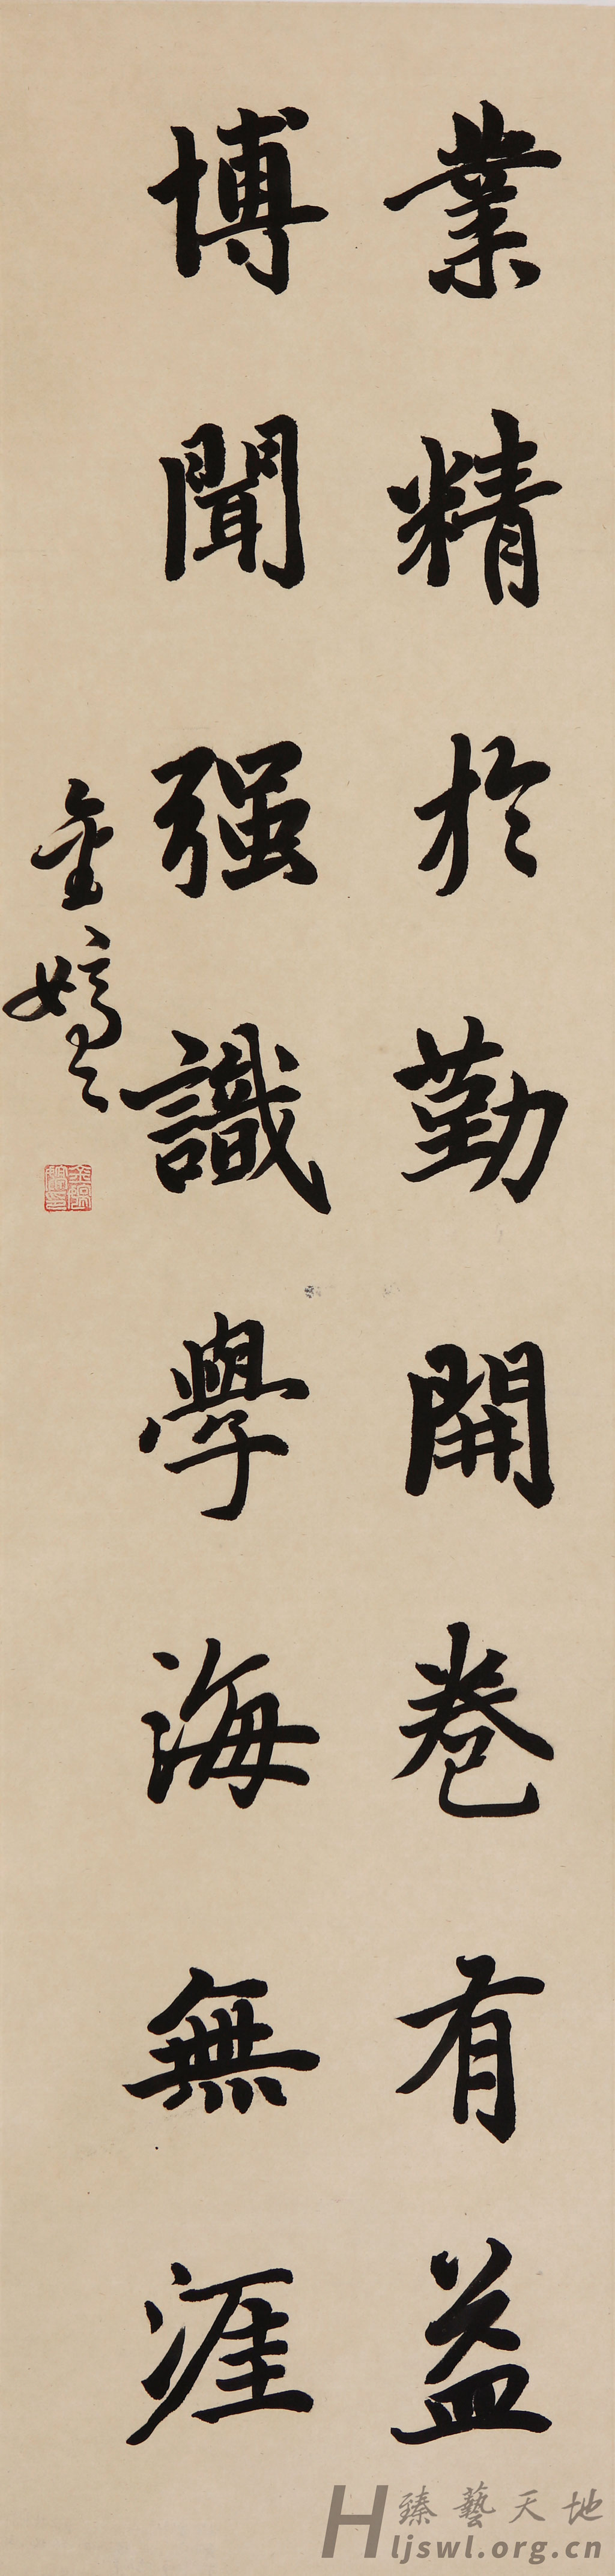 業精於勤開卷有益
博聞强識學海無涯
金嬌
臻藝天地
Hljswl.org.cn